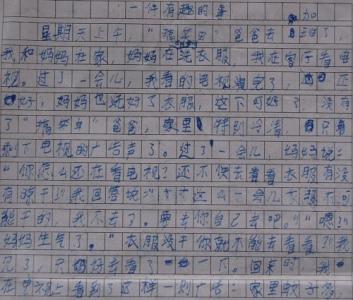 一件有趣的事
星期天上午，"搞笑王"爸爸去加班了。
我和妈妈在家，妈妈在洗衣服，我在客厅看电
视。过了一会儿，我看的电视演完了，还
好，妈妈也洗好了衣服，这下可好了，没有
了"搞笑王"爸爸，家里特别冷清，只
剩下电视的广告声了。过了一会儿，妈妈说：
"你怎么还在看电视？还不快去看看衣服有没
有晾干！"我回答说："才这么一会儿衣服不可
能干的，我不去了。要去你自己去吧。""嗯！"
妈妈生气了。"衣服没干你就不能去看看？"我
只好去看了一下。回来时，我
在电视上看到了这样一则广告：家里